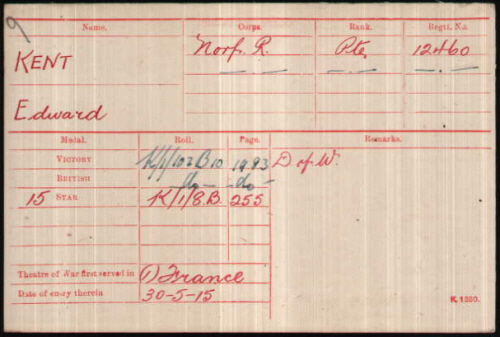 9
Name. Corps. Rank. Regtl. No.
KENT Norf. R. Pte. 12460
— . — — . — — . —
Edward
Medal. Roll. Page. Remarks.
VICTORY K/1/102 B10 1993 D of W.
BRITISH do — do —
15 STAR K/1/8.B. 255
Theatre of War first served in (1) France
Date of entry therein 30-5-15
K. 1380.